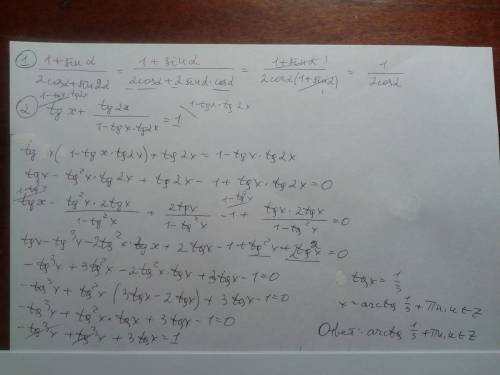 ① (1+sin α)/(2cosα+sin2α) = (1+sinα)/(2cosα+2sinα·cosα) = (1+sinα)/(2cosα(1+sinα)) = 1/(2cosα)
② tg x + tg2x/(1-tgx·tg2x) = 1
tg x(1-tgx·tg2x)+tg2x = 1-tgx·tg2x
tgx - tg²x·tg2x + tg2x - 1 + tgx·tg2x = 0
tgx - (tg²x·2tgx)/(1-tg²x) + 2tgx/(1-tg²x) - 1 + (tgx·2tgx)/(1-tg²x) = 0
tgx-tg³x-2tg²x·tgx+2tgx-1+tg²x+2tg²x=0
-tg³x+3tg²x-2tg²x·tgx+3tgx-1=0
-tg³x+tg²x(3tgx-2tgx)+3tgx-1=0
-tg³x+tg²x·tgx+3tgx-1=0
-tg³x+tg³x+3tgx=1
tgx=1/3
x=arctg 1/3+πn,n∈Z
Ответ: arctg 1/3+πn,n∈Z